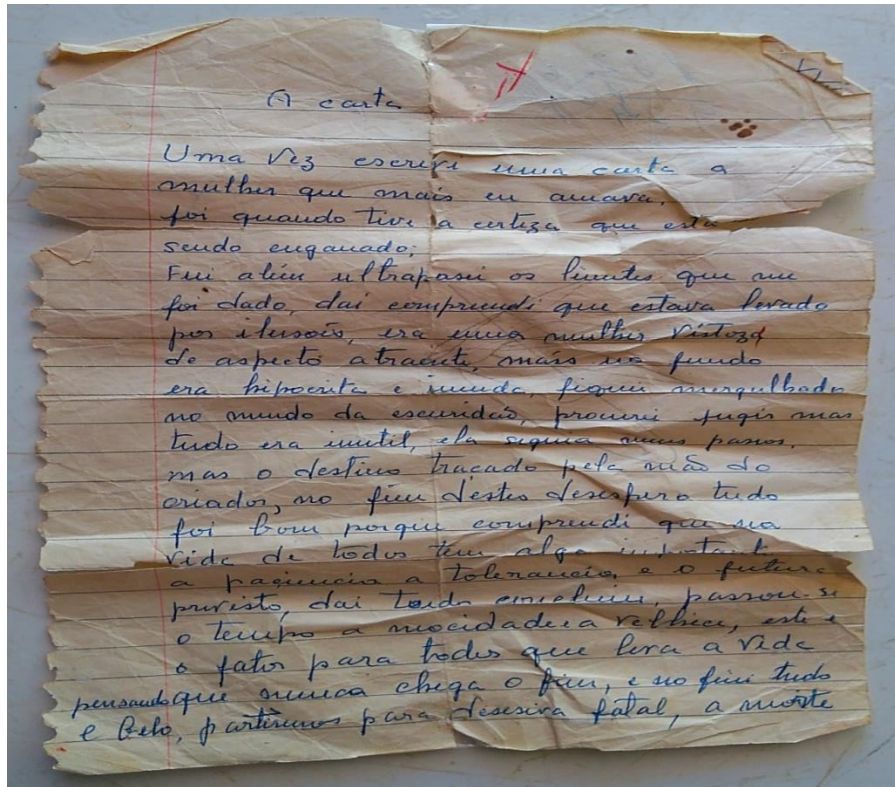 A carta
Uma Vez escrevi uma carta a
mulher que mais eu amava,
foi quando tive a certeza que esta
sendo enganado;
Fui além ultrapasei os limites que me
foi dado, dai compreendi que estava levado
por ilusois, era uma mulher vistoza
de aspecto atraente, mais no fundo
era hipocrita e imunda, fiquei mergulhado
no mundo da escuridão, procurei fugir mas
tudo era inutil, ela seguia meus passos.
mas o destino traçado pela mão do
criador, no fim dêstes desespero tudo
foi bom porque compreendi que na
vida de todos tem algo important
a paciencia a tolerancia, e o futuro
previsto, dai tudo conclui, passou-se
o tempo a mocidade e a velhice, este e
o fator para todos que leva a vida
pensando que nunca chega o fim, e no fim tudo
e belo, partiremos para desesiva fatal, a morte